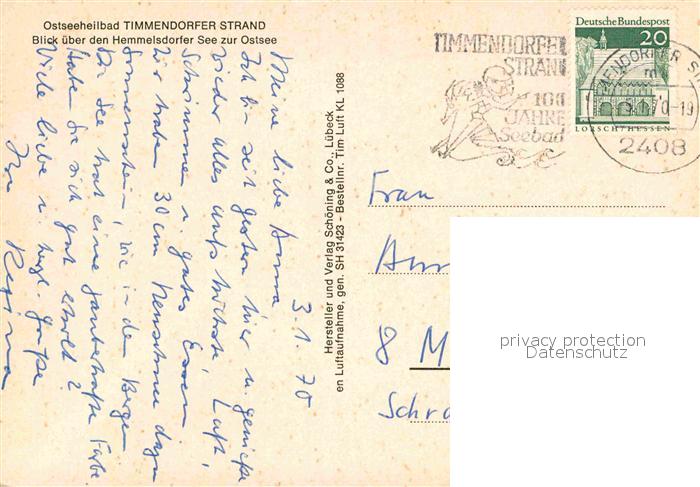 Ostseeheilbad TIMMENDORFER STRAND
Blick über den Hemmelsdorfer See zur Ostsee
3.1.70
Meine liebe Anna
Ich bin seit gestern hier u. genieße
wieder alles aufs höchste, Luft,
Schwimmen u. gutes Essen
Wir haben 30 cm Neuschnee dazu
Sonnenschein, wie in den Bergen
Die See hat eine zauberhafte Farbe
Haben Sie sich gut erholt?
Viele liebe u. herzl. Grüße
Ihre Regina
Hersteller und Verlag Schöning & Co., Lübeck
en Luftaufnahme, gen. SH 31423 - Bestellnr. Tim Luft KL 1088
TIMMENDORFER
STRAND
100
JAHRE
Seebad
Deutsche Bundespost
20
LORSCH/HESSEN
MENDORFER S
70-19
2408
Frau
Ann
8 M
Schr
privacy protection
Datenschutz